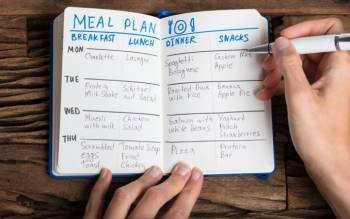 MEAL PLAN
BREAKFAST LUNCH DINNER SNACKS
MON
Omelette Lasagna Spaghetti Bolognese Cashew Mix Apple
TUE
Protein Milk Shake Schitzel and Salad Roasted Duck with Rice Banana Apple Pie
WED
Muesli with milk Chicken Salad Salmon with white beans Yoghurt Peach Strawberries
THU
Scrambled eggs Toast Tomato Soup Fried Chicken Pizza Protein Bar